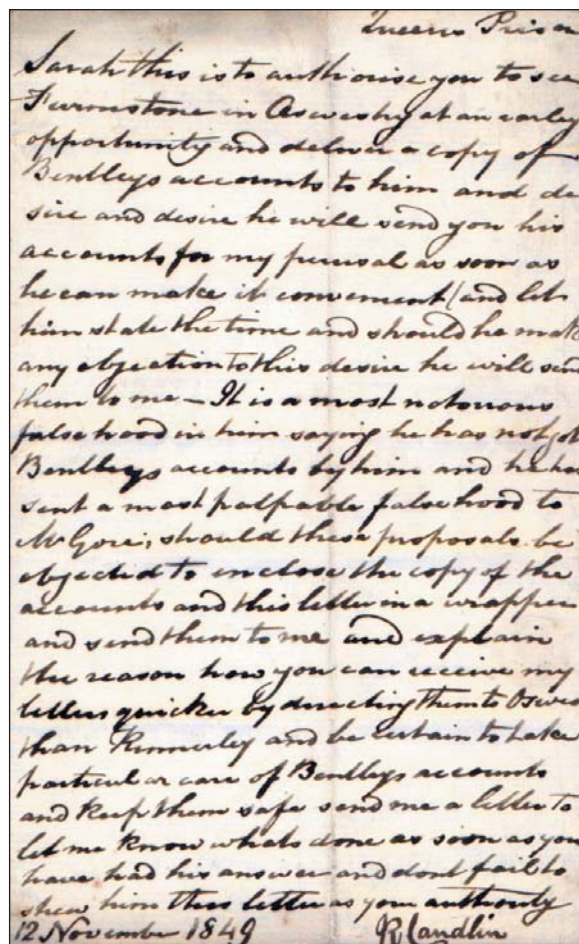 Queens Prison
Sarah this is to authorise you to see
Furmstone in Oswestry at an earley
opportunity and deliver a copy of
Bentleys accounts to him and de
sire and desire he will send you his
accounts for my perusal as soon as
he can make it convenient (and let
him state the time and should he make
any objection to this desire he will send
them to me — It is a most notorious
falsehood in him saying he has not got
Bentleys accounts by him and he has
sent a most palpable falsehood to
Mr Gore; should these proposals be
objected to enclose the copy of the
accounts and this letter in a wrapper
and send them to me and explain
the reason how you can receive my
letters quicker by directing them to Oswes
than and be certain to take
particular care of Bentleys accounts
and keep them safe send me a letter to
let me know whats done as soon as you
have had his answer and dont fail to
shew him this letter as your authority
12 November 1849 R Candlin